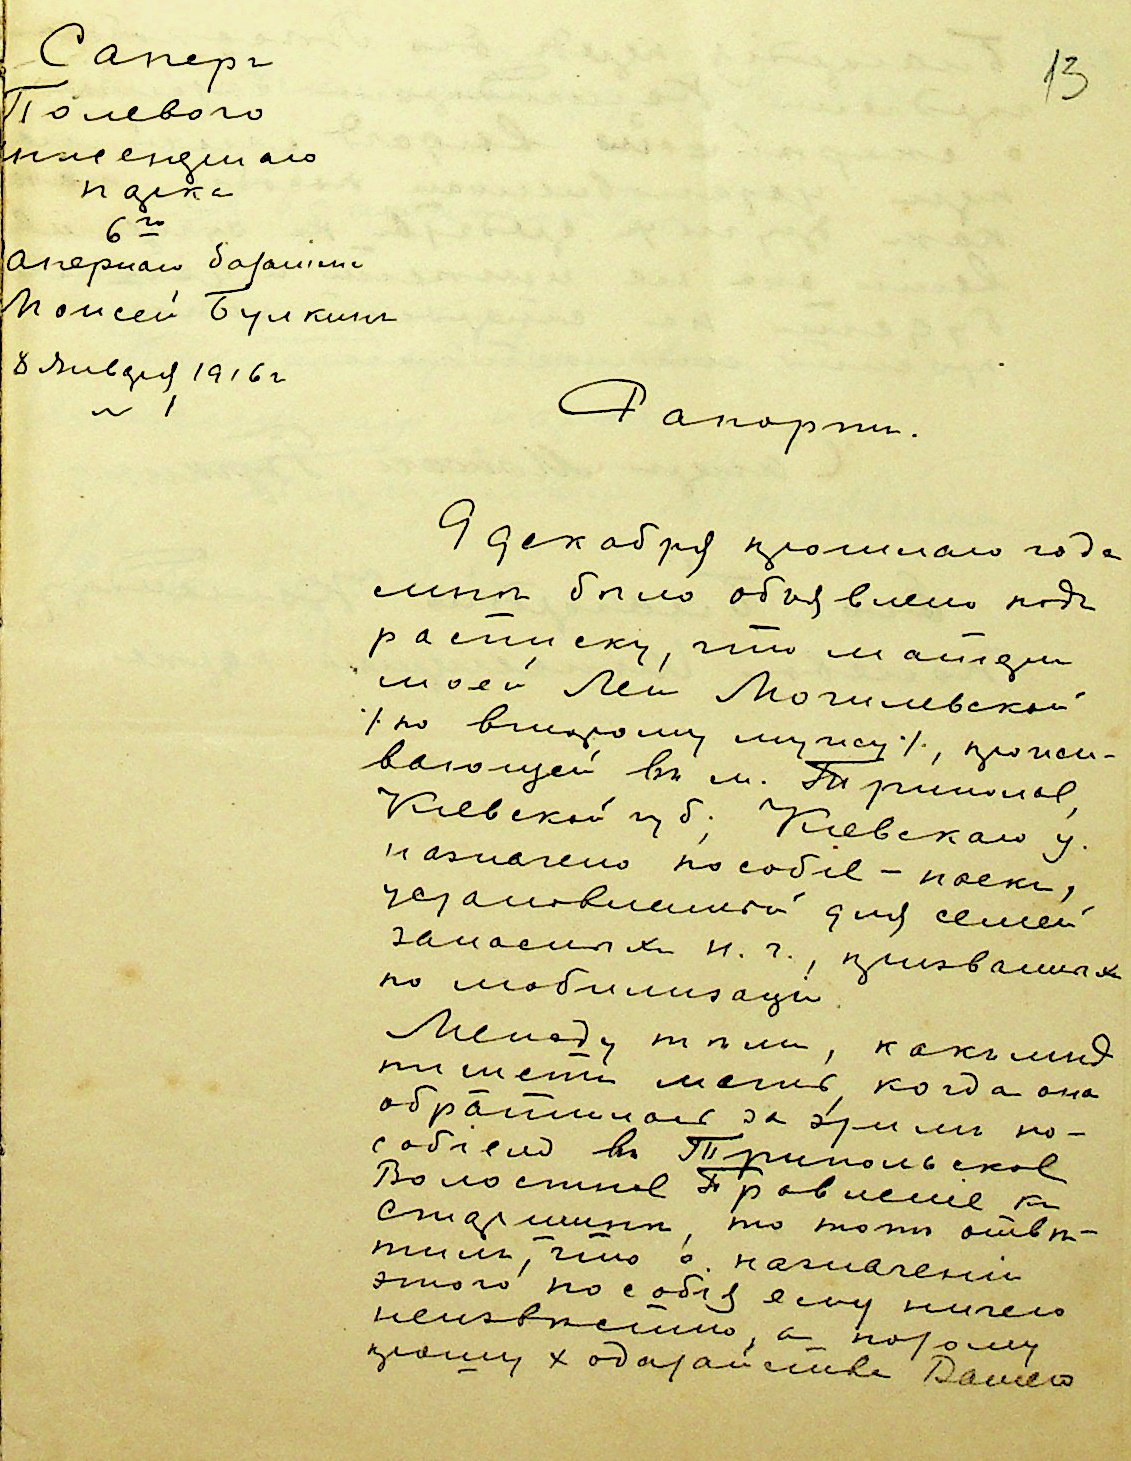 Саперъ
Полевого
инженернаго
парка
6го
апернаго баталіона
Моисей Булкинъ
8 Января 1916 г
№ 1
13
Рапортъ.
9 декабря прошлаго года
мнѣ было объявлено подъ
расписку, что матери
моей Леи Могилевской
·/. по второму мужу ·/., прожи-
вающей въ м. Триполье,
Кіевской губ., Кіевскаго у.
назначено пособіе – паекъ,
установленный для семей
запасныхъ н. ч., призванныхъ
по мобилизаціи.
Между тѣмъ, какъ мнѣ
пишетъ мать, когда она
обратилась за этимъ по-
собіемъ въ Трипольское
Волостное Правленіе къ
Старшинѣ, то тотъ отвѣ-
тилъ, что о назначеніи
этого пособія ему ничего
неизвѣстно, а потому
прошу ходатайства Вашего